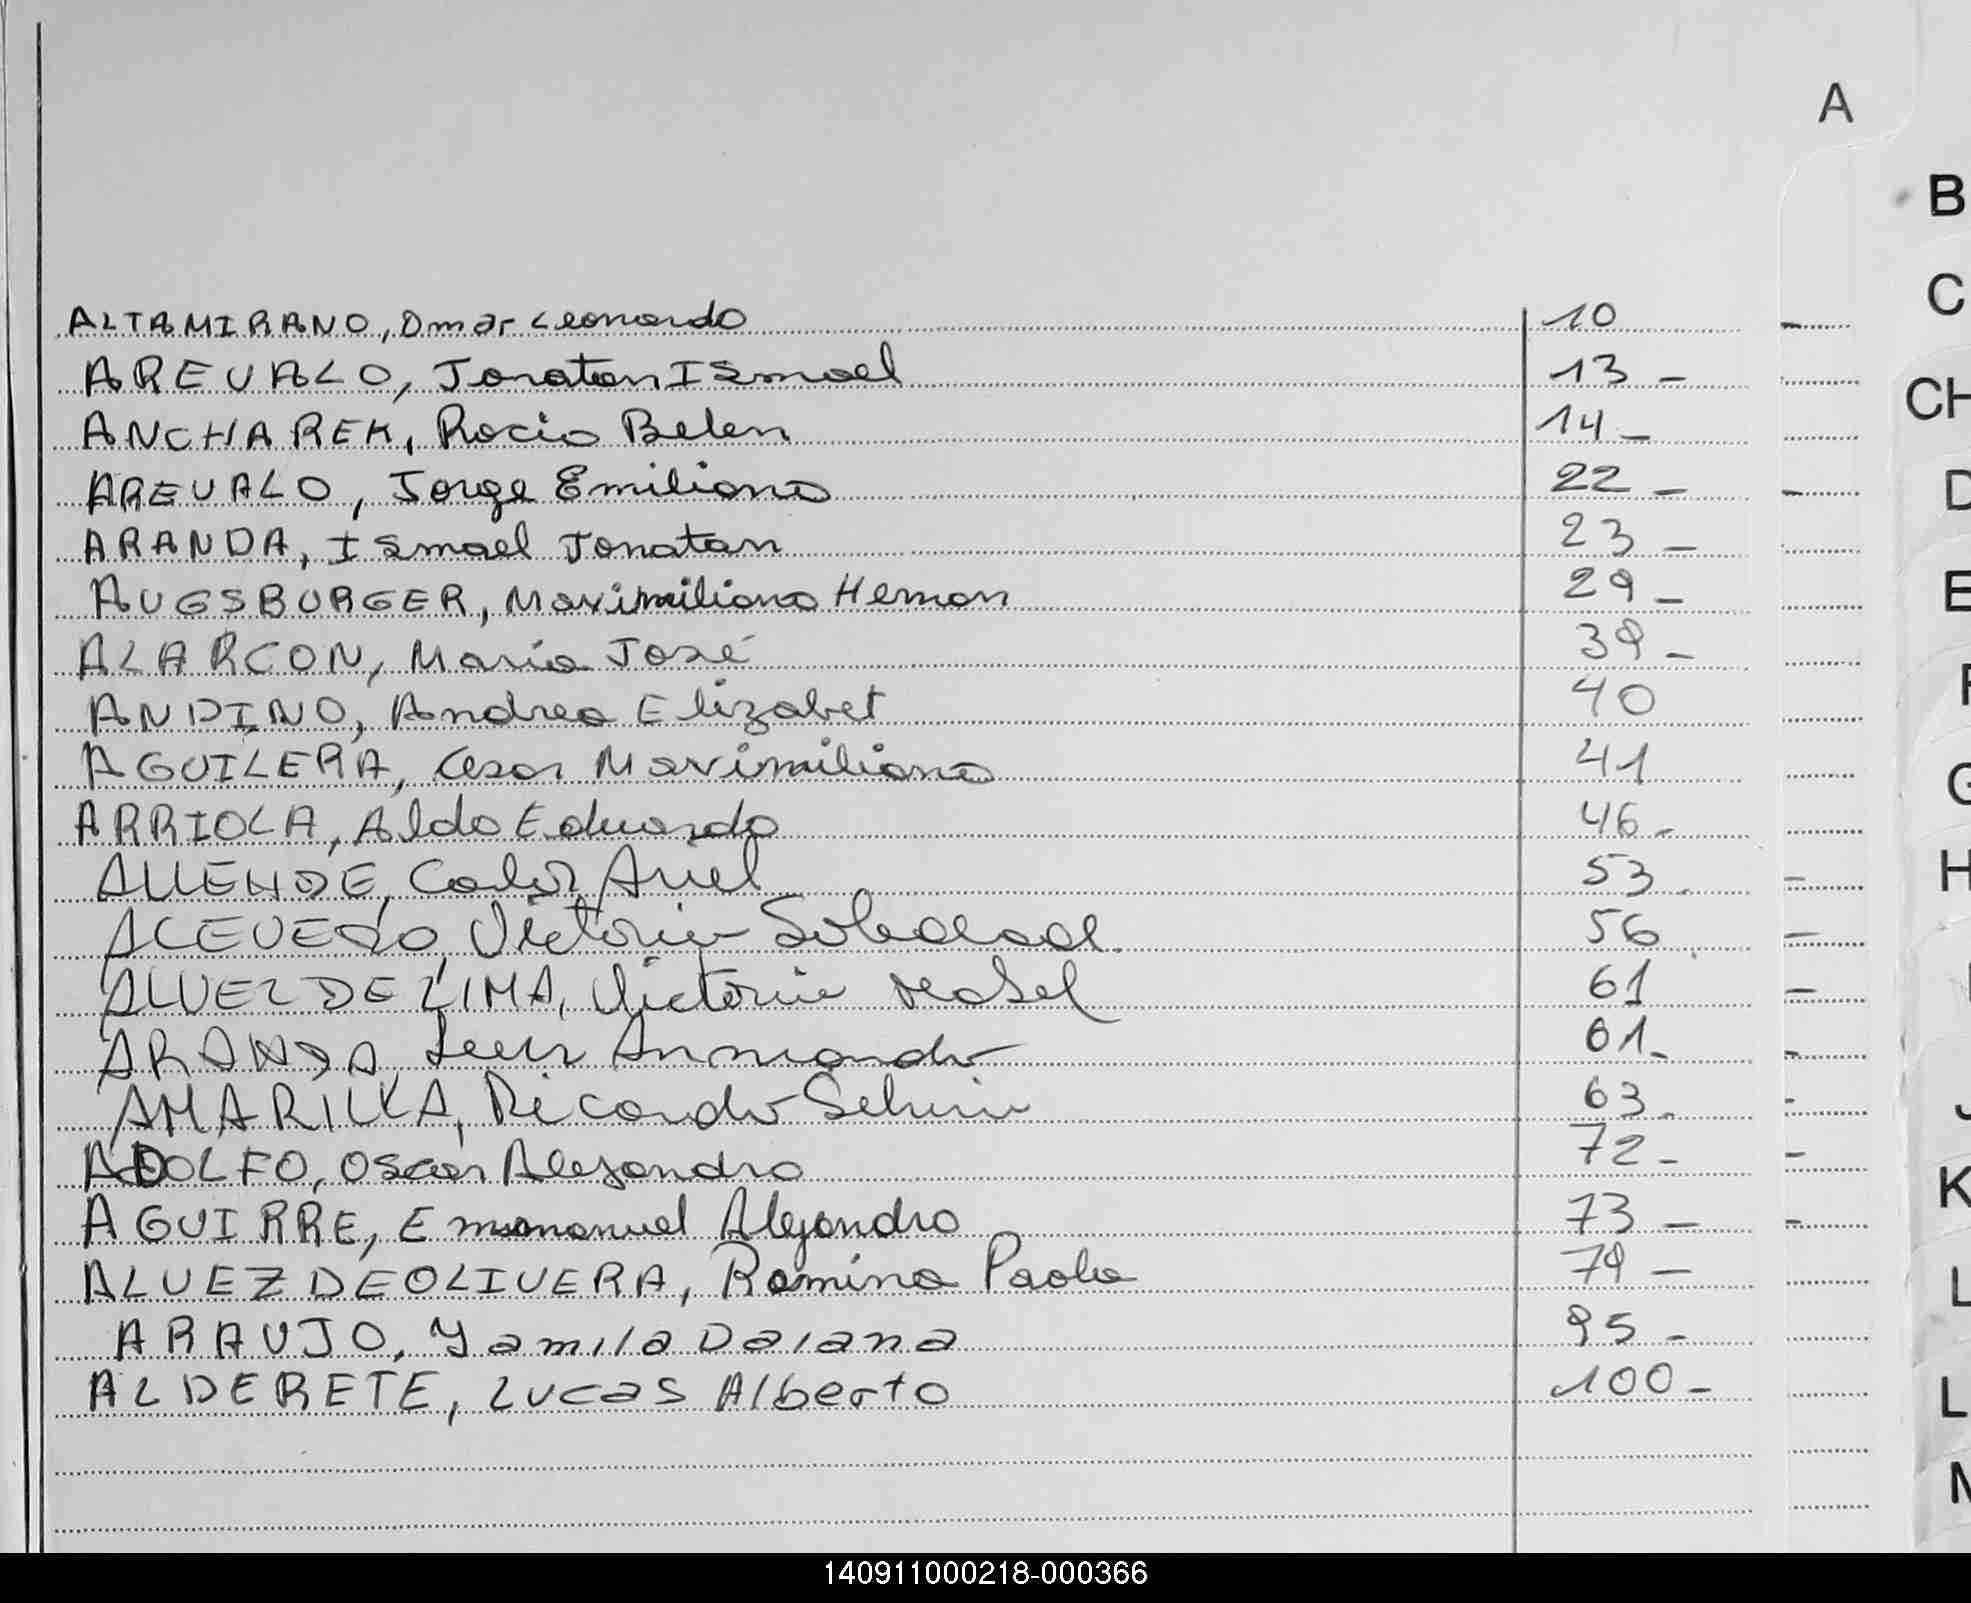 A
B
C
CH
D
E
F
G
H
J
K
L
L
ALTAMIRANO, Omar Leonardo 10
AREVALO, Jonatan Ismael 13 -
ANCHAREK, Rocio Belen 14 -
AREVALO, Jorge Emiliano 22 -
ARANDA, Ismael Jonatan 23 -
AUGSBURGER, Maximiliano Hernan 29 -
ALARCON, Maria José 39 -
ANDINO, Andrea Elizabet 40
AGUILERA, Cesar Maximiliano 41
ARRIOLA, Aldo Eduardo 46 -
ALLENDE, Carlos Ariel 53
ACEVEDO, Victoria Soledad 56
ALVEZ DE LIMA, Victoria Mabel 61
ARANDA, Luis Armando 61 -
AMARILLA, Ricardo 63 -
ADOLFO, Oscar Alejandro 72 -
AGUIRRE, Emmanuel Alejandro 73 -
ALVEZ DE OLIVERA, Romina Paola 79 -
ARAUJO, Yamila Daiana 95 -
ALDERETE, Lucas Alberto 100 -
140911000218-000366